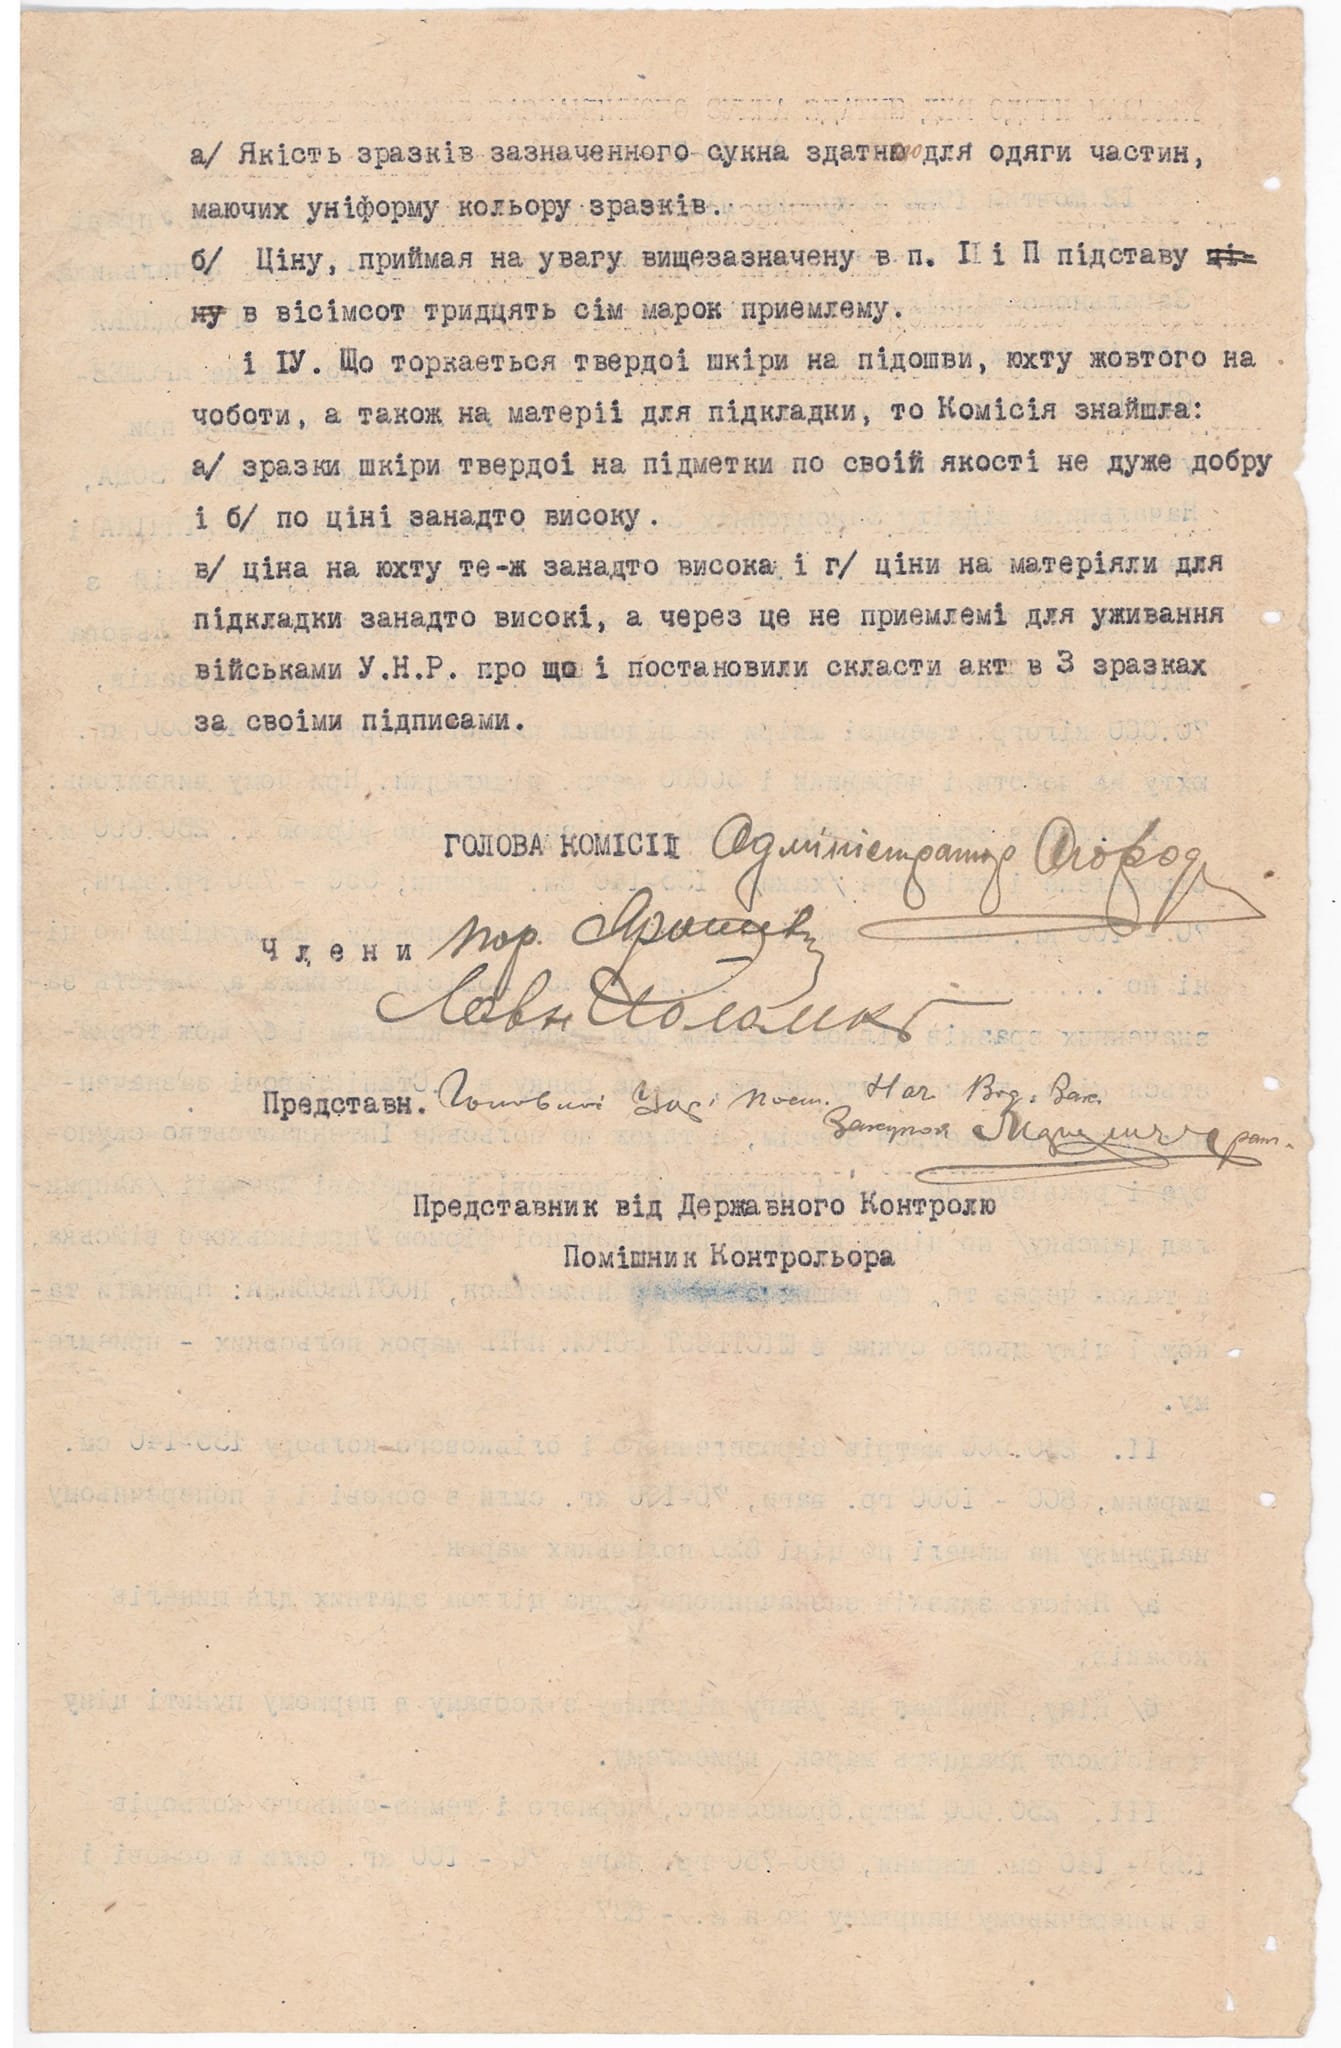 а/ Якість зразків зазначенного сукна здатною для одяги частин,
маючих уніформу кольору зразків.
б/ Ціну, приймая на увагу вищезазначену в п. II і П підставу ці-
ну в вісімсот тридцять сім марок приемлему.
і ІУ. Що торкаеться твердоі шкіри на підошви, юхту жовтого на
чоботи, а також на матеріі для підкладки, то Комісія знайшла:
а/ зразки шкіри твердоі на підметки по своій якості не дуже добру
і б/ по ціні занадто високу.
в/ ціна на юхту те-ж занадто висока і г/ ціни на матеріяли для
підкладки занадто високі, а через це не приемлемі для уживання
військами У.Н.Р. про що і постановили скласти акт в 3 зразках
за своіми підписами.
ГОЛОВА КОМІСІІ Адміністратор
Члени пор.
Представн. Головноі Упр. пост. Нач. Від. Зак.
Представник від Державного Контролю
Помішник Контрольора